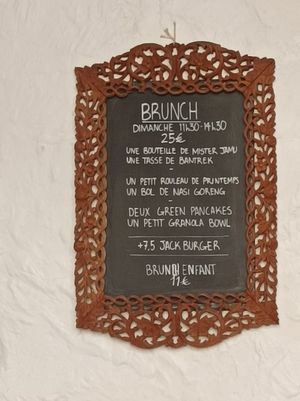 BRUNCH
DIMANCHE 11h30-14h30
25€
UNE BOUTEILLE DE MISTER JAMU
UNE TASSE DE BANTREK
–
UN PETIT ROULEAU DE PRINTEMPS
UN BOL DE NASI GORENG
–
DEUX GREEN PANCAKES
UN PETIT GRANOLA BOWL
+7,5 JACK BURGER
BRUNCH ENFANT
11€